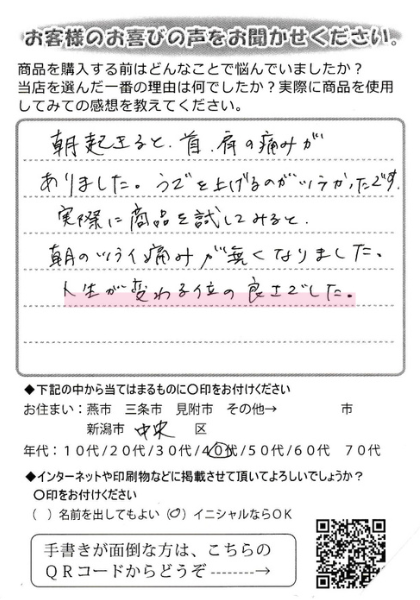 お客様のお喜びの声をお聞かせください。
商品を購入する前はどんなことで悩んでいましたか？
当店を選んだ一番の理由は何でしたか？実際に商品を使用
してみての感想を教えてください。
朝起きると、首、肩の痛みが
ありました。うでを上げるのがツラかったです。
実際に商品を試してみると、
朝のツライ痛みが無くなりました。
人生が変わる位の良さでした。
◆下記の中から当てはまるものに〇印をお付けください
お住まい：燕市　三条市　見附市　その他→　　　　　市
新潟市　中央　区
年代：１０代/２０代/３０代/４０代/５０代/６０代　７０代
◆インターネットや印刷物などに掲載させて頂いてよろしいでしょうか？
〇印をお付けください
（　）名前を出してもよい（〇）イニシャルならＯＫ
手書きが面倒な方は、こちらの
ＱＲコードからどうぞ --------→